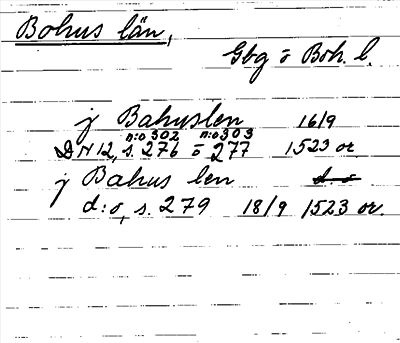 Bohus län,
Gbg o Boh. l.
j Bahuslen 16/9
n:o 302 n:o 303
DN 12, s. 276 o 277 1523 or.
j Bahus len d. o
d:o, s. 279 18/9 1523 or.